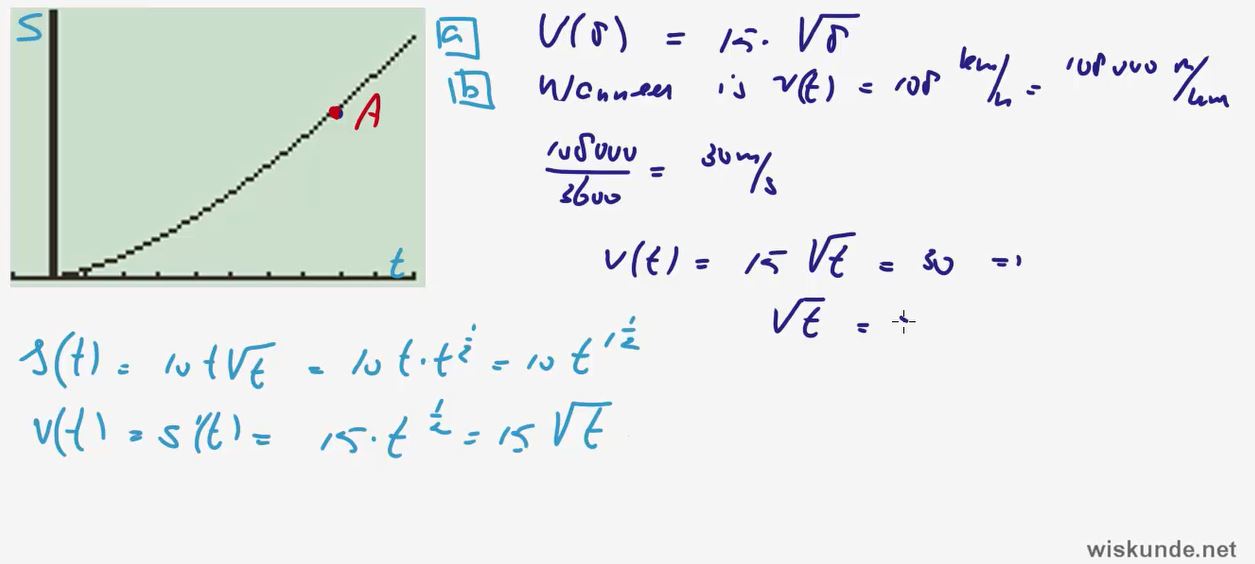 S
A
t
a V(8) = 15 · √8
b Wanneer is v(t) = 108 km/h = 108000 m/
108000/3600 = 30 m/s
v(t) = 15 √t = 30 =>
√t =
s(t) = 10 t√t = 10 t · t^½ = 10 t^1½
v(t) = s'(t) = 15 · t^½ = 15 √t
wiskunde.net